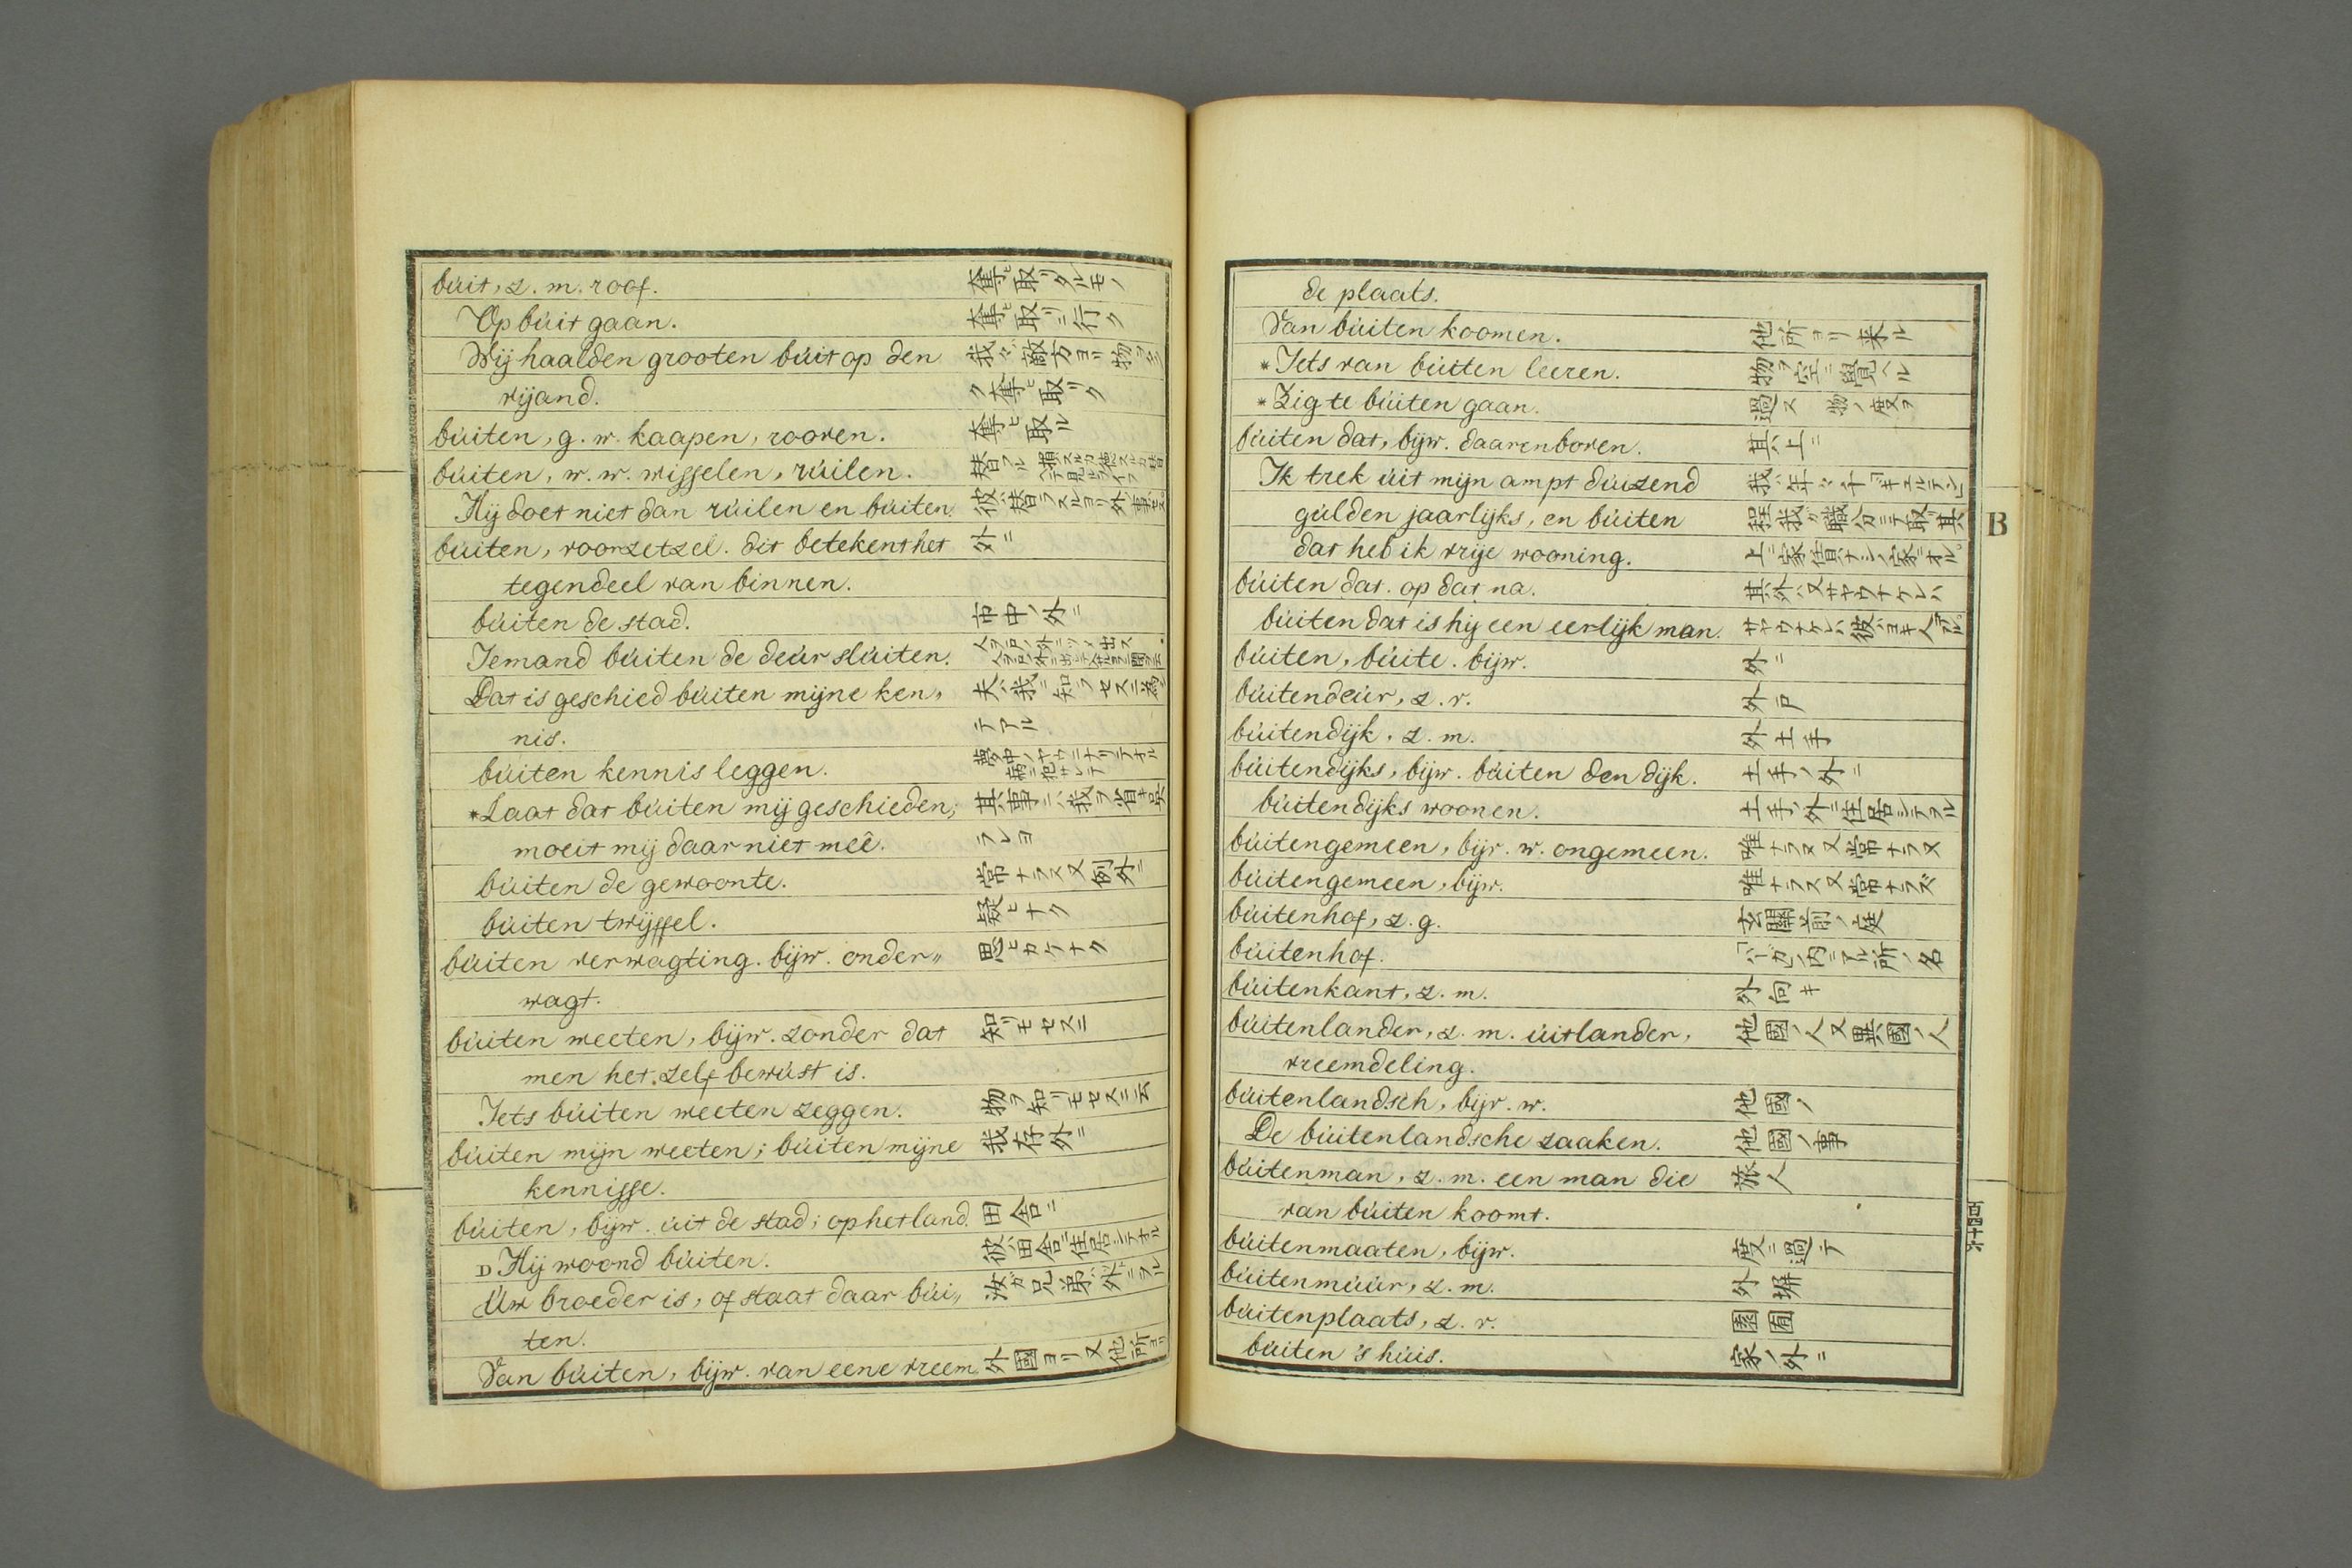 buit, z. m. roof. 奪ヒ取リタルモノ
Op buit gaan. 奪ヒ取リニ行ク
Wij haalden grooten buit op den 我々敵方ヨリ物ヲ多
vijand. ク奪ヒ取リク
buiten, g. w. kaapen, rooven. 奪ヒ取ル
buiten, w. w. wisselen, ruilen. 替フル
Hij doet niet dan ruilen en buiten.
buiten, voorzetzel. dit betekent het 外ニ
tegendeel van binnen.
buiten de stad. 市中ノ外ニ
Iemand buiten de deur sluiten. 人ヲ戸ノ外ニツメ出ス
Dat is geschied buiten mijne ken„ 夫ハ我ニ知ラセスニ為
nis. テアル
buiten kennis leggen.
*Laat dat buiten mij geschieden; 其事ニハ我ヲ省キ呉
moeit mij daar niet meê. ラレヨ
buiten de gewoonte. 常ナラス又例外ニ
buiten twijffel. 疑ヒナク
buiten verwagting. bijw. onder„ 思ヒカケナク
wagt.
buiten weeten, bijw. zonder dat 知リモセスニ
men het zelf bewust is.
Iets buiten weeten zeggen. 物ヲ知リモセスニ云
buiten mijn weeten; buiten mijne 我存外ニ
kennisse.
buiten, bijw. uit de stad; op het land. 田舎ニ
D Hij woond buiten. 彼ハ田舎ニ住居シテオル
Uw broeder is, of staat daar bui„ 汝ガ兄弟ハ外ニヲル
ten.
Van buiten, bijw. van eene vreem„ 外國ヨリ又他所ヨリ
de plaats.
Van buiten koomen. 他所ヨリ来ル
*Iets van buiten leeren. 物ヲ空ニ覺ヘル
*Zig te buiten gaan. 過ス 物ノ度ヲ
buiten dat, bijw. daarenboven. 其上ニ
Ik trek uit mijn ampt duizend
gulden jaarlijks, en buiten 程我職分ニテ取リ其
dat heb ik vrije wooning. 上ニ家賃ナシノ家ニオル
buiten dat. op dat na. 其外ハ又サヤウナケレハ
buiten dat is hij een eerlijk man. サヤウナケレハ彼ハヨキ人テアル
buiten, buite. bijw. 外ニ
buitendeur, z. v. 外戸
buitendijk, z. m. 外土手
buitendijks, bijw. buiten den dijk. 土手ノ外ニ
buitendijks woonen. 土手ノ外ニ住居シテヲル
buitengemeen, bijv. w. ongemeen. 唯ナラヌ又常ナラヌ
buitengemeen, bijw. 唯ナラス又常ナラズ
buitenhof, z. g. 玄關前ノ庭
buitenhof.
buitenkant, z. m. 外向キ
buitenlander, z. m. uitlander, 他國ノ人又異國ノ人
vreemdeling.
buitenlandsch, bijv. w. 他國ノ
De buitenlandsche zaaken. 他國ノ事
buitenman, z. m. een man die 旅人
van buiten koomt.
buitenmaaten, bijw. 度ニ過テ
buitenmuur, z. m. 外塀
buitenplaats, z. v. 園囿
buiten 's huis. 家ノ外ニ
B
百四十六